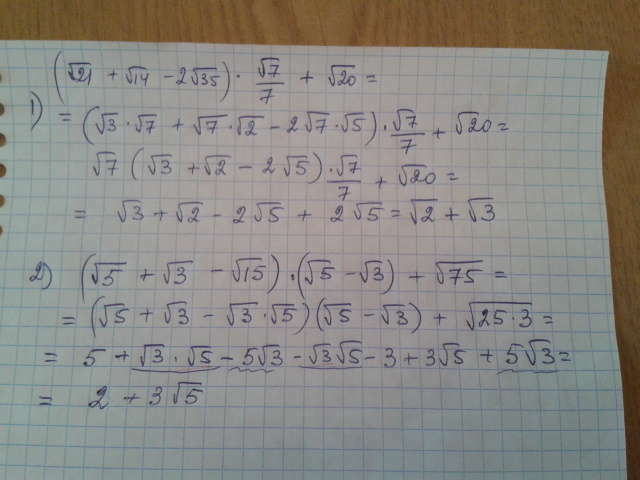 (√21 + √14 - 2√35) · √7/7 + √20 =
1) = (√3 · √7 + √7 · √2 - 2√7 · √5) · √7/7 + √20 =
√7 (√3 + √2 - 2√5) · √7/7 + √20 =
= √3 + √2 - 2√5 + 2√5 = √2 + √3
2) (√5 + √3 - √15) · (√5 - √3) + √75 =
= (√5 + √3 - √3 · √5)(√5 - √3) + √25·3 =
= 5 + √3 · √5 - 5√3 - √3√5 - 3 + 3√5 + 5√3 =
= 2 + 3√5